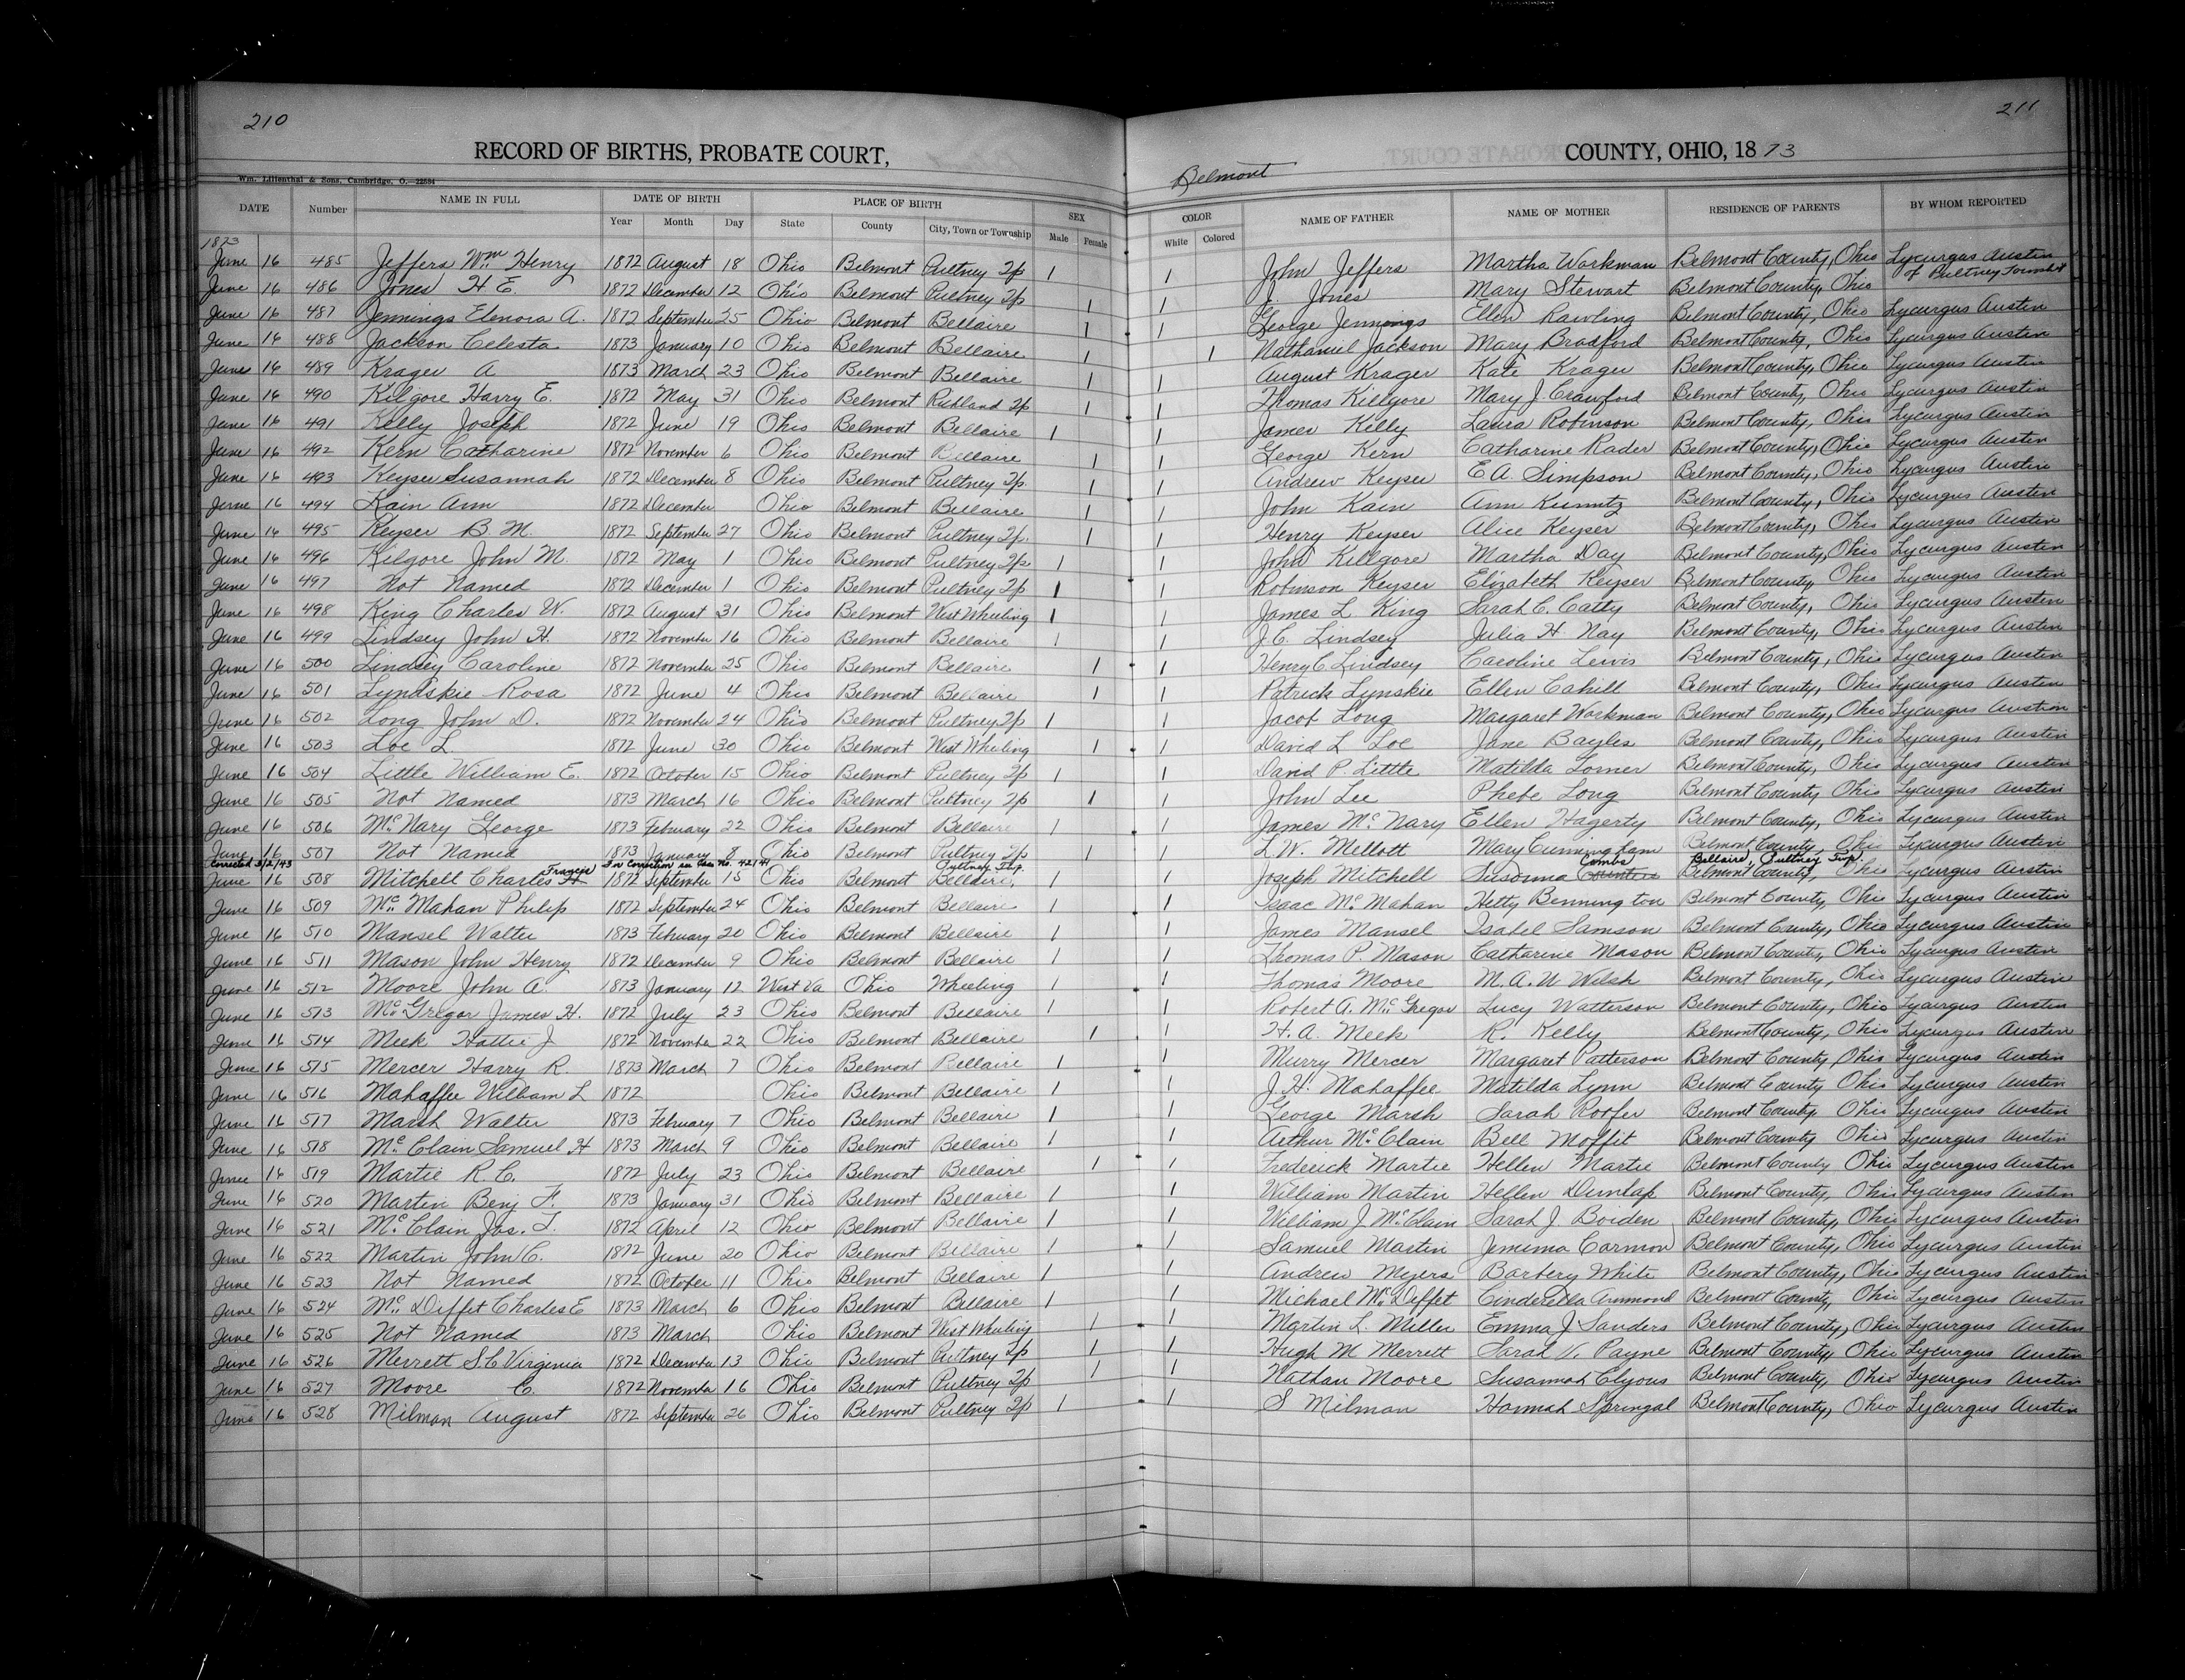 210
211
RECORD OF BIRTHS, PROBATE COURT, Belmont COUNTY, OHIO, 1873
Wm. Lilienthal & Sons, Cambridge, O.—22584
DATE Number NAME IN FULL DATE OF BIRTH PLACE OF BIRTH SEX COLOR NAME OF FATHER NAME OF MOTHER RESIDENCE OF PARENTS BY WHOM REPORTED
Year Month Day State County City, Town or Township Male Female White Colored
1873
June 16 485 Jeffers Wm. Henry 1872 August 18 Ohio Belmont Pultney Tp 1 1 John Jeffers Martha Workman Belmont County, Ohio Lycurgus Austin
of Pultney
June 16 486 Jones H E. 1872 December 12 Ohio Belmont Pultney Tp 1 1 Jones Mary Stewart Belmont County, Ohio
June 16 487 Jennings Elenora A. 1872 September 25 Ohio Belmont Bellaire 1 1 George Jennings Ellen Rawling Belmont County, Ohio Lycurgus Austin
June 16 488 Jackson Celesta 1873 January 10 Ohio Belmont Bellaire 1 1 Nathaniel Jackson Mary Bradford Belmont County, Ohio Lycurgus Austin
June 16 489 Krager A 1873 March 23 Ohio Belmont Bellaire 1 1 August Krager Kate Krager Belmont County, Ohio Lycurgus Austin
June 16 490 Kilgore Harry E. 1872 May 31 Ohio Belmont Richland Tp 1 1 Thomas Killgore Mary J. Crawford Belmont County, Ohio Lycurgus Austin
June 16 491 Kelly Joseph 1872 June 19 Ohio Belmont Bellaire 1 1 James Kelly Laura Robinson Belmont County, Ohio Lycurgus Austin
June 16 492 Kern Catharine 1872 November 6 Ohio Belmont Bellaire 1 1 George Kern Catharine Rader Belmont County, Ohio Lycurgus Austin
June 16 493 Keyser Susannah 1872 December 8 Ohio Belmont Pultney Tp. 1 1 Andrew Keyser E A. Simpson Belmont County, Ohio Lycurgus Austin
June 16 494 Kain Ann 1872 December Ohio Belmont Bellaire 1 1 John Kain Ann Belmont County, Ohio Lycurgus Austin
June 16 495 Keyser B. M. 1872 September 27 Ohio Belmont Pultney Tp. 1 1 Henry Keyser Alice Keyser Belmont County, Ohio Lycurgus Austin
June 16 496 Kilgore John M. 1872 May 1 Ohio Belmont Pultney Tp. 1 1 John Killgore Martha Day Belmont County, Ohio Lycurgus Austin
June 16 497 Not Named 1872 December 1 Ohio Belmont Pultney Tp 1 1 Robinson Keyser Elizabeth Keyser Belmont County, Ohio Lycurgus Austin
June 16 498 King Charles W. 1872 August 31 Ohio Belmont West Wheeling 1 1 James L. King Sarah C. Catty Belmont County, Ohio Lycurgus Austin
June 16 499 Lindsey John H. 1872 November 16 Ohio Belmont Bellaire 1 1 J. C. Lindsey Julia H. Nay Belmont County, Ohio Lycurgus Austin
June 16 500 Lindsey Caroline 1872 November 25 Ohio Belmont Bellaire 1 1 Henry C. Lindsey Caroline Lewis Belmont County, Ohio Lycurgus Austin
June 16 501 Lyndskie Rosa 1872 June 4 Ohio Belmont Bellaire 1 1 Patrick Lynskie Ellen Cahill Belmont County, Ohio Lycurgus Austin
June 16 502 Long John D. 1872 November 24 Ohio Belmont Pultney Tp 1 1 Jacob Long Margaret Workman Belmont County, Ohio Lycurgus Austin
June 16 503 Loe L. 1872 June 30 Ohio Belmont West Wheeling 1 1 David L. Loe Jane Bayles Belmont County, Ohio Lycurgus Austin
June 16 504 Little William E. 1872 October 15 Ohio Belmont Pultney Tp 1 1 David P. Little Matilda Lorner Belmont County, Ohio Lycurgus Austin
June 16 505 Not Named 1873 March 16 Ohio Belmont Pultney Tp 1 1 John Lee Phebe Long Belmont County Ohio Lycurgus Austin
June 16 506 McNary George 1873 February 22 Ohio Belmont Bellaire 1 1 James McNary Ellen Hagerty Belmont County, Ohio Lycurgus Austin
June 16 507 Not Named 1873 January 8 Ohio Belmont Pultney Tp 1 1 L. W. Mellott Mary Cunningham Belmont County, Ohio Lycurgus Austin
Corrected 3/2/43 Francis For correction see Case No. 42144 Pultney Twp. Combs Bellaire, Pultney Twp.
June 16 508 Mitchell Charles H 1872 September 15 Ohio Belmont Bellaire, 1 1 Joseph Mitchell Susanna Belmont County, Ohio Lycurgus Austin
June 16 509 McMahan Philip 1872 September 24 Ohio Belmont Bellaire 1 1 Isaac McMahan Hetty Bennington Belmont County, Ohio Lycurgus Austin
June 16 510 Mansel Walter 1873 February 20 Ohio Belmont Bellaire 1 1 James Mansel Isabel Samson Belmont County, Ohio Lycurgus Austin
June 16 511 Mason John Henry 1872 December 9 Ohio Belmont Bellaire 1 1 Thomas P. Mason Catharine Mason Belmont County, Ohio Lycurgus Austin
June 16 512 Moore John A. 1873 January 12 West Va Ohio Wheeling 1 1 Thomas Moore M. A. W Welsh Belmont County, Ohio Lycurgus Austin
June 16 513 McGregor James H. 1872 July 23 Ohio Belmont Bellaire 1 1 Robert A. McGregor Lucy Watterson Belmont County, Ohio Lycurgus Austin
June 16 514 Meek Hattie J 1872 November 22 Ohio Belmont Bellaire 1 1 H. A. Meek R. Kelly Belmont County, Ohio Lycurgus Austin
June 16 515 Mercer Harry R. 1873 March 7 Ohio Belmont Bellaire 1 1 Murry Mercer Margaret Patterson Belmont County, Ohio Lycurgus Austin
June 16 516 Mahaffee William L 1872 Ohio Belmont Bellaire 1 1 J. H. Mahaffee Matilda Lynn Belmont County Ohio Lycurgus Austin
June 16 517 Marsh Walter 1873 February 7 Ohio Belmont Bellaire 1 1 George Marsh Sarah Roofer Belmont County Ohio Lycurgus Austin
June 16 518 McClain Samuel H 1873 March 9 Ohio Belmont Bellaire 1 1 Arthur McClain Bell Moffit Belmont County Ohio Lycurgus Austin
June 16 519 Martie R. C. 1872 July 23 Ohio Belmont Bellaire 1 1 Frederick Martie Hellen Martie Belmont County Ohio Lycurgus Austin
June 16 520 Martin Benj F. 1873 January 31 Ohio Belmont Bellaire 1 1 William Martin Hellen Dunlap Belmont County, Ohio Lycurgus Austin
June 16 521 McClain Jas. T. 1872 April 12 Ohio Belmont Bellaire 1 1 William J. McClain Sarah J. Boiden Belmont County, Ohio Lycurgus Austin
June 16 522 Martin John C. 1872 June 20 Ohio Belmont Bellaire 1 1 Samuel Martin Jemima Carmon Belmont County, Ohio Lycurgus Austin
June 16 523 Not Named 1872 October 11 Ohio Belmont Bellaire 1 1 Andrew Myers Barbery White Belmont County, Ohio Lycurgus Austin
June 16 524 McDiffet Charles E 1873 March 6 Ohio Belmont Bellaire 1 1 Michael McDiffet Cinderella Ammond Belmont County, Ohio Lycurgus Austin
June 16 525 Not Named 1873 March Ohio Belmont West Wheeling 1 1 Martin L. Miller Emma J Sanders Belmont County, Ohio Lycurgus Austin
June 16 526 Merrett S. C Virginia 1872 December 13 Ohio Belmont Pultney Tp 1 1 Hugh M Merrett Sarah V. Payne Belmont County, Ohio Lycurgus Austin
June 16 527 Moore C. 1872 November 16 Ohio Belmont Pultney Tp 1 1 Nathan Moore Susannah Clyous Belmont County, Ohio Lycurgus Austin
June 16 528 Milman August 1872 September 26 Ohio Belmont Pultney Tp 1 1 S Milman Hannah Springal Belmont County, Ohio Lycurgus Austin